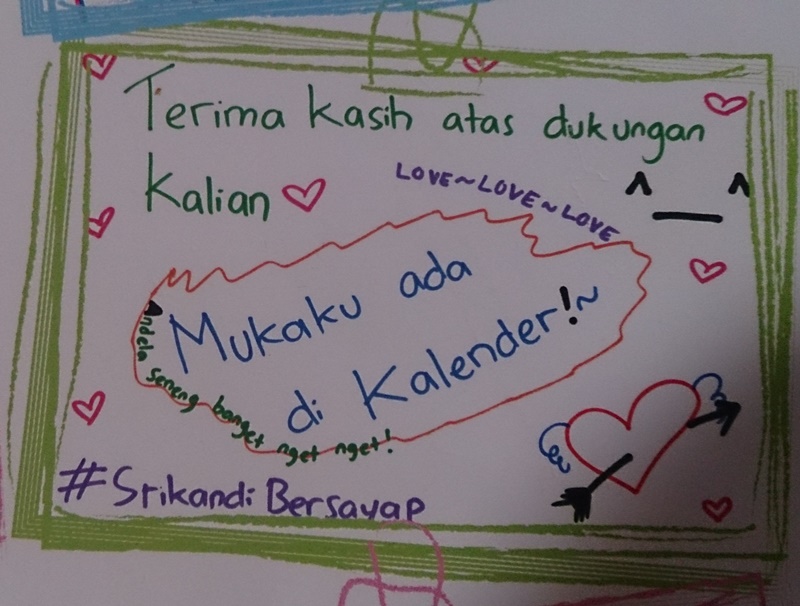 Terima kasih atas dukungan
Kalian
LOVE~LOVE~LOVE
^_^
Mukaku ada
di Kalender!~
Andela seneng banget nget nget!
#SrikandiBersayap